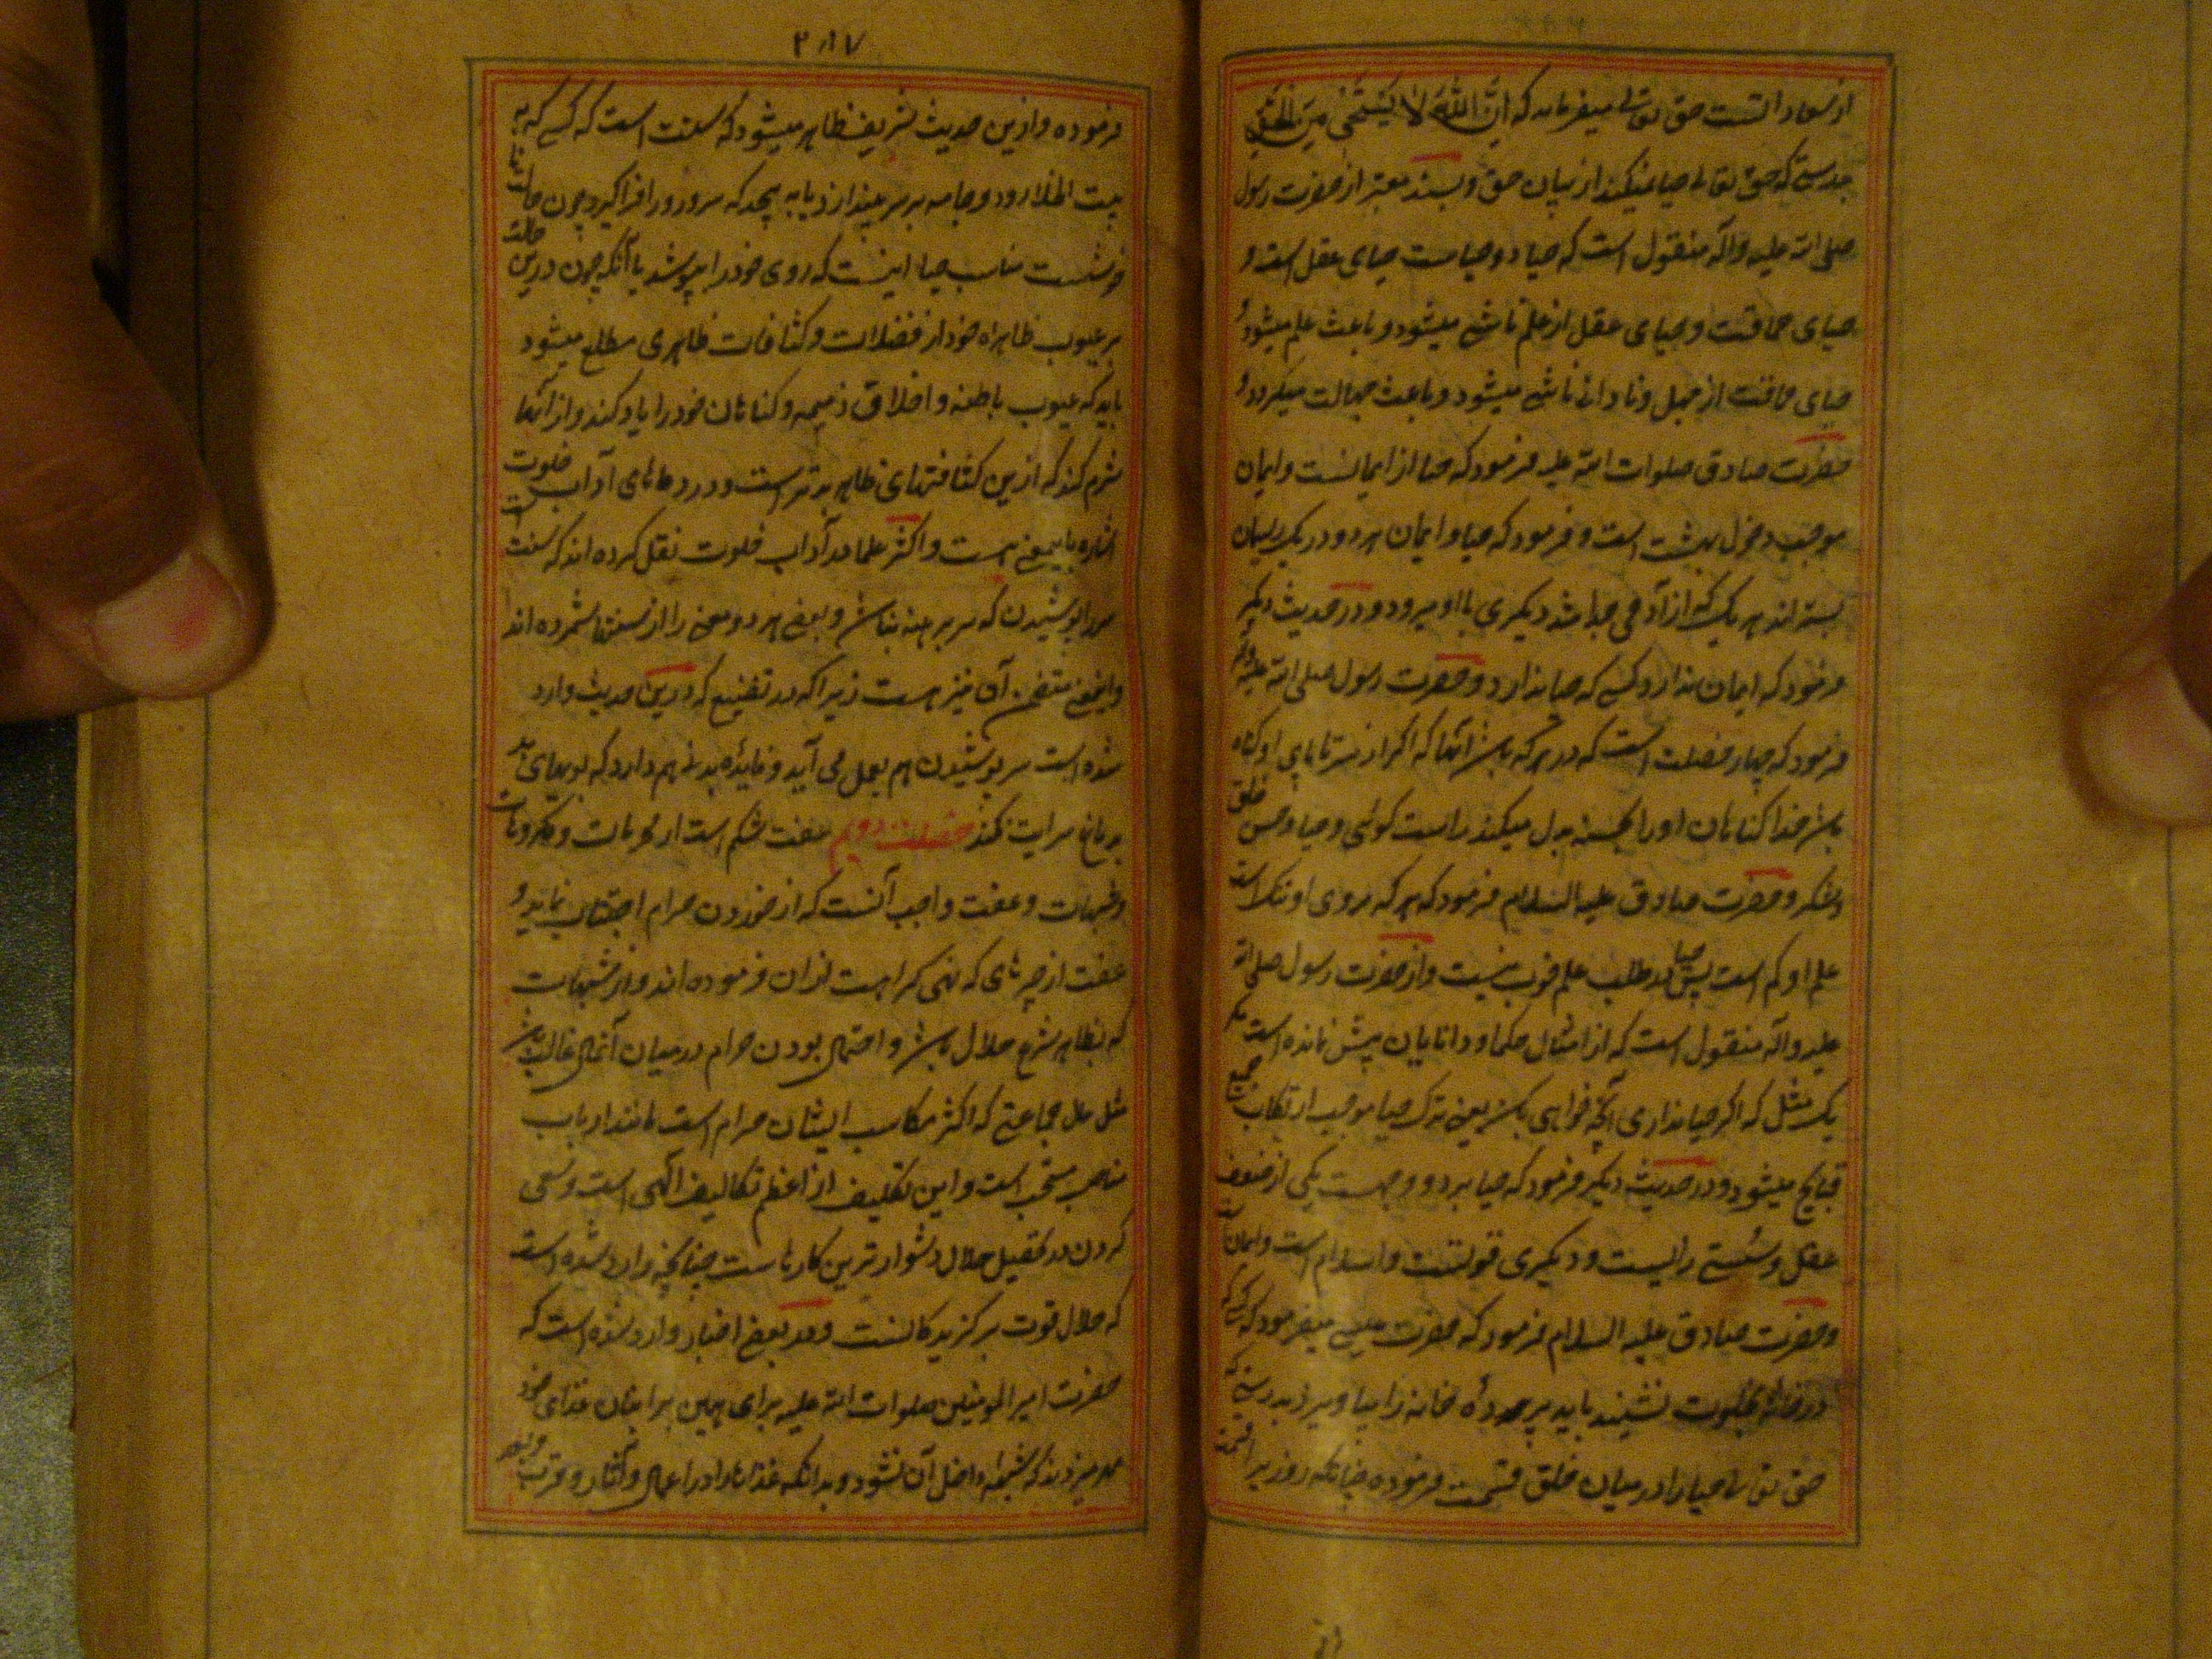 از سعادتست حق تعالی میفرماید که اِنَّ اللّٰهَ لَا یَسْتَحْیِی مِنَ الْحَقِّ
بدرستی که حق تعالی حیا نمیکند از بیان حق و بسند معتبر از حضرت رسول
صلی الله علیه و آله منقول است که حیا دو حیاست حیای عقل است و
حیای حماقتست و حیای عقل از علم ناشی میشود و باعث علم میشود و
حیای حماقت از جهل و نادانی ناشی میشود و باعث جهالت میگردد و
حضرت صادق صلوات الله علیه فرمود که حیا از ایمانست و ایمان
موجب دخول بهشت است و فرمود که حیا و ایمان هر دو در یک ریسمان
بسته اند هر یک که از آدمی جدا شد دیگری با او میرود و در حدیث دیگر
فرمود که ایمان ندارد کسی که حیا ندارد و حضرت رسول صلی الله علیه و آله
فرمود که چهار خصلت است که در هر که باشد آنها که اگر از سر تا پای او گناه
باشد خدا گناهان او را بحسنه بدل میکند راست گوئی و حیا و حسن خلق
و شکر و حضرت صادق علیه السلام فرمود که هر که روی او تنک است
علم او کم است پس حیا در طلب علم خوب نیست و از حضرت رسول صلی الله
علیه و آله منقول است که از امثال حکما و دانایان پیش نمانده است مگر
یک مثل که اگر حیا نداری آنچه خواهی بکن یعنی ترک حیا موجب ارتکاب جمیع
قبایح میشود و در حدیث دیگر فرمود که حیا بر دو وجهست یکی از ضعف
عقل و سستی رایست و دیگری قوتست و اسلام است و ایمان است
و حضرت صادق علیه السلام فرمود که حضرت عیسی میفرمود که کسی که
در خانه بخلوت نشیند باید پرده خانه را بیاویزد بدرستی که
حق تعالی حیا را در میان خلق قسمت فرموده چنانکه روزی را قسمت
۲۸۷
فرموده و ازین حدیث شریف ظاهر میشود که سنت است که کسی که به
بیت الخلا رود و جامه بر سر بیندازد یا به پیچد که سر و رو را فرا گیرد چون حالت
خوشست مناسب حیا اینست که روی خود را بپوشد با آنکه چون درین حالت
بر عیوب ظاهراه خود از فضلات و کثافات ظاهری مطلع میشود
باید که عیوب باطنه و اخلاق ذمیمه و گناهان خود را یاد کند و از آنها
شرم کند که ازین کثافتهای ظاهر بدتر است و در دعاهای آداب خلوت
اشاره باین معنی هست و اکثر علما در آداب خلوت نقل کرده اند که سنت است
سر را پوشیدن که سر برهنه نباشد و بعضی هر دو معنی را از سنتها شمرده اند
و این معنی متضمن آن نیز هست زیرا که در تقنیع که درین حدیث وارد
شده است سر پوشیدن هم بعمل می آید و فایده بدنی هم دارد که بویهای بد
بدماغ سرایت نکند خصلت دویم عفت شکم است از محرمات و مکروهات
و شبهات و عفت واجب آنست که از خوردن حرام اجتناب نماید و
عفت از چیزهای که نهی کراهت ازان فرموده اند و از شبهات
که بظاهر شرع حلال باشد و احتمال بودن حرام در میان آنمال غالب باشد
مثل مال جماعتی که اکثر مکاسب ایشان حرام است مانند ارباب
مناصب مستحب است و این تکلیف از اعظم تکالیف الهی است و سعی
کردن در تحصیل حلال دشوار ترین کارهاست چنانچه وارد شده است
که حلال قوت برگزیدگانست و در بعضی اخبار وارد شده است که
حضرت امیر المومنین صلوات الله علیه برای همین بر انبان غذای خود
مهر میزدند که شبهه داخل آن نشود و بدانکه غذاها را در اعمال و آثار و قرب و بعد